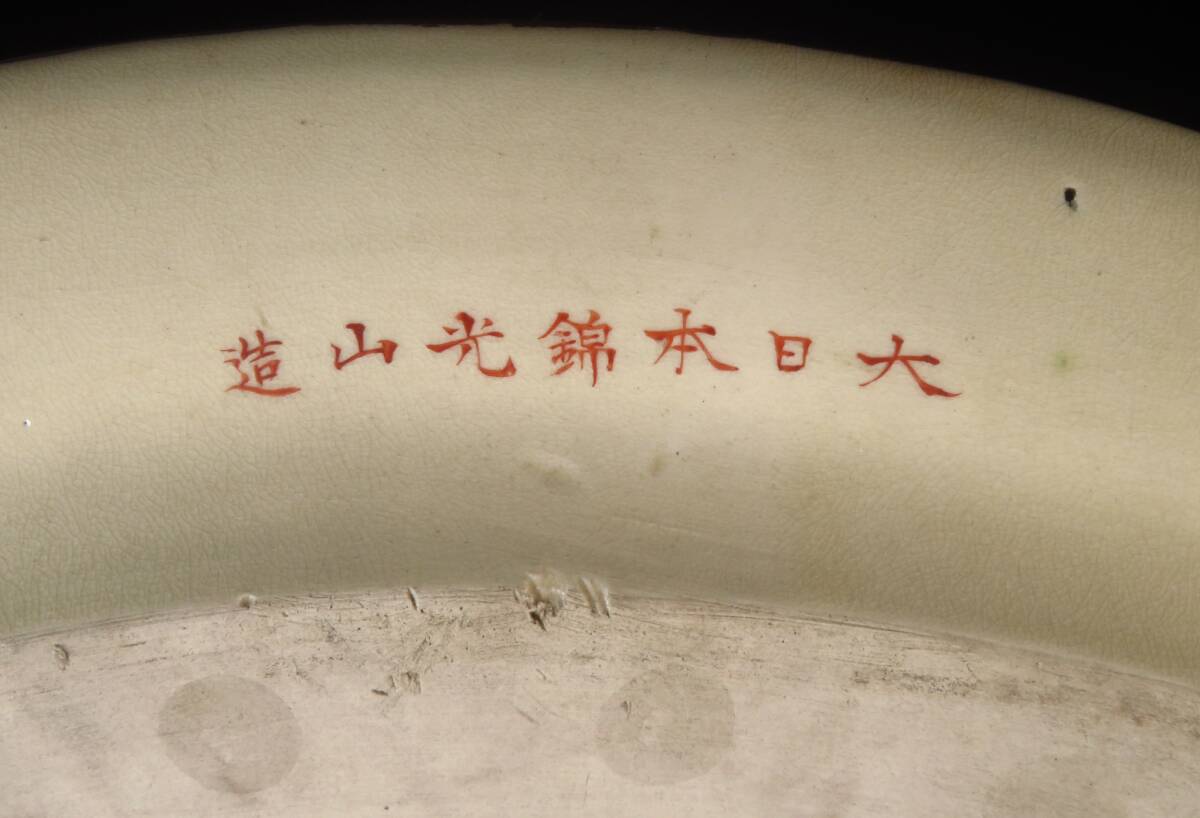 大日本錦光山造